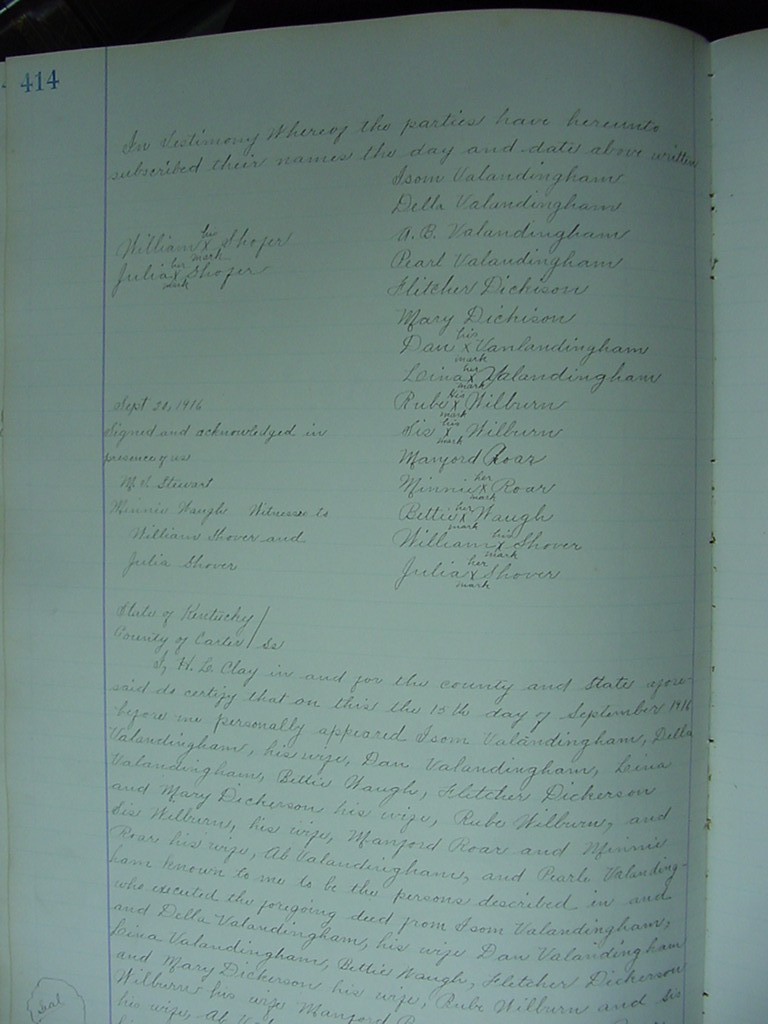 414
In Testimony Whereof the parties have hereunto
subscribed their names the day and date above written
Isom Valandingham
Della Valandingham
A. B. Valandingham
Pearl Valandingham
Flitcher Dickison
Mary Dickison
Dan his X mark Vanlandingham
Lina her X mark Valandingham
Rube his X mark Wilburn
Sis his X mark Wilburn
Manford Roar
Minnie her X mark Roar
Bettie her X mark Waugh
William his X mark Shover
Julia her X mark Shover
William his X mark Shofer
Julia her X mark Shofer
Sept 20, 1916
Signed and acknowledged in
presence of us
Stewart
Minnie Waugh Witnesses to
William Shover and
Julia Shover
State of Kentucky
County of Carter / Ss
I, H. L. Clay in and for the county and State afore-
said do certify that on this the 15th day of September 1916
before me personally appeared Isom Valandingham, Della
Valandingham, his wife, Dan Valandingham, Lina
Valandingham, Bettie Waugh, Flitcher Dickerson
and Mary Dickerson his wife, Rube Wilburn, and
Sis Wilburn, his wife, Manford Roar and Minnie
Roar his wife, Ab Valandingham, and Pearle Valanding-
ham known to me to be the persons described in and
who executed the foregoing deed from Isom Valandingham,
and Della Valandingham, his wife Dan Valandingham
Lina Valandingham, Bettie Waugh, Flitcher Dickerson
and Mary Dickerson his wife, Rube Wilburn and Sis
Wilburn his wife Manford
his wife, Ab
Seal